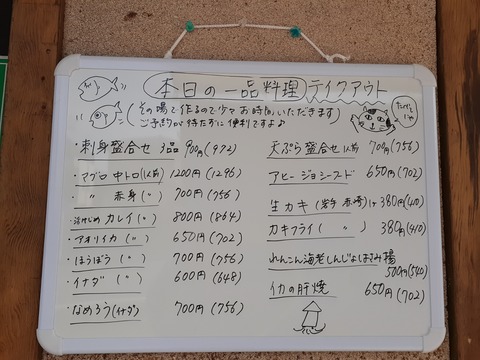 本日の一品料理 テイクアウト
(その場で作るので少々お時間いただきます
ご予約が待たずに便利ですよ♪
・刺身盛合せ 3品 900円(972)
・マグロ 中トロ(1人前) 1200円(1296)
〃 赤身(〃) 700円(756)
・活〆 カレイ(〃) 800円(864)
・アオリイカ(〃) 650円(702)
・ほうぼう(〃) 700円(756)
・イナダ(〃) 600円(648)
・なめろう(イナダ) 700円(756)
天ぷら盛合せ 1人前 700円(756)
アヒージョ シーフード 650円(702)
生カキ(岩手 赤崎)1ヶ 380円(410)
カキフライ(〃) 380円(410)
れんこん海老しんじょはさみ揚
500円(540)
イカの肝焼 650円(702)